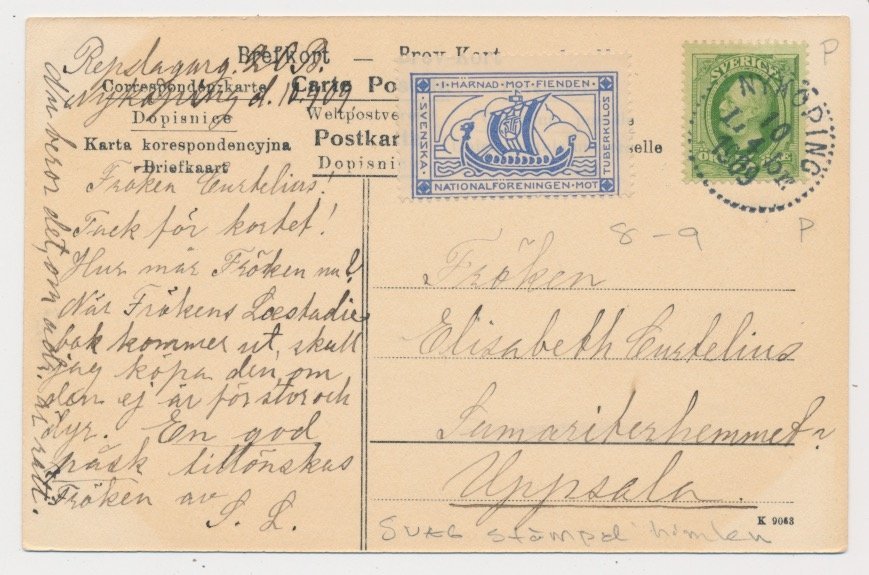 Brefkort — Brev-Kort
Repslagareg. 20 B.
Correspondenzkarte
Nyköping d. 10.4.09
Dopisnice
Karta korespondencyjna
Briefkaart
Carte Pos
Weltpostve
Postkar
Dopisni
selle
I·HÄRNAD·MOT·FIENDEN
SVENSKA
NATIONALFÖRENINGEN·MOT
TUBERKULOS
SVERIGE
NYKÖPING
10
4
09
P
P
8-9
Fröken Curtelius!
Tack för kortet!
Hur mår Fröken nu?
När Frökens Læstadie
bok kommer ut, skall
jag köpa den om
den ej är för stor och
dyr. En god
påsk tillönskas
Fröken av
S. L.
beror det, om adr. är rätt.
Fröken
Elisabeth Curtelius
Samariterhemmet
Uppsala.
K 9063
Svag stämpel